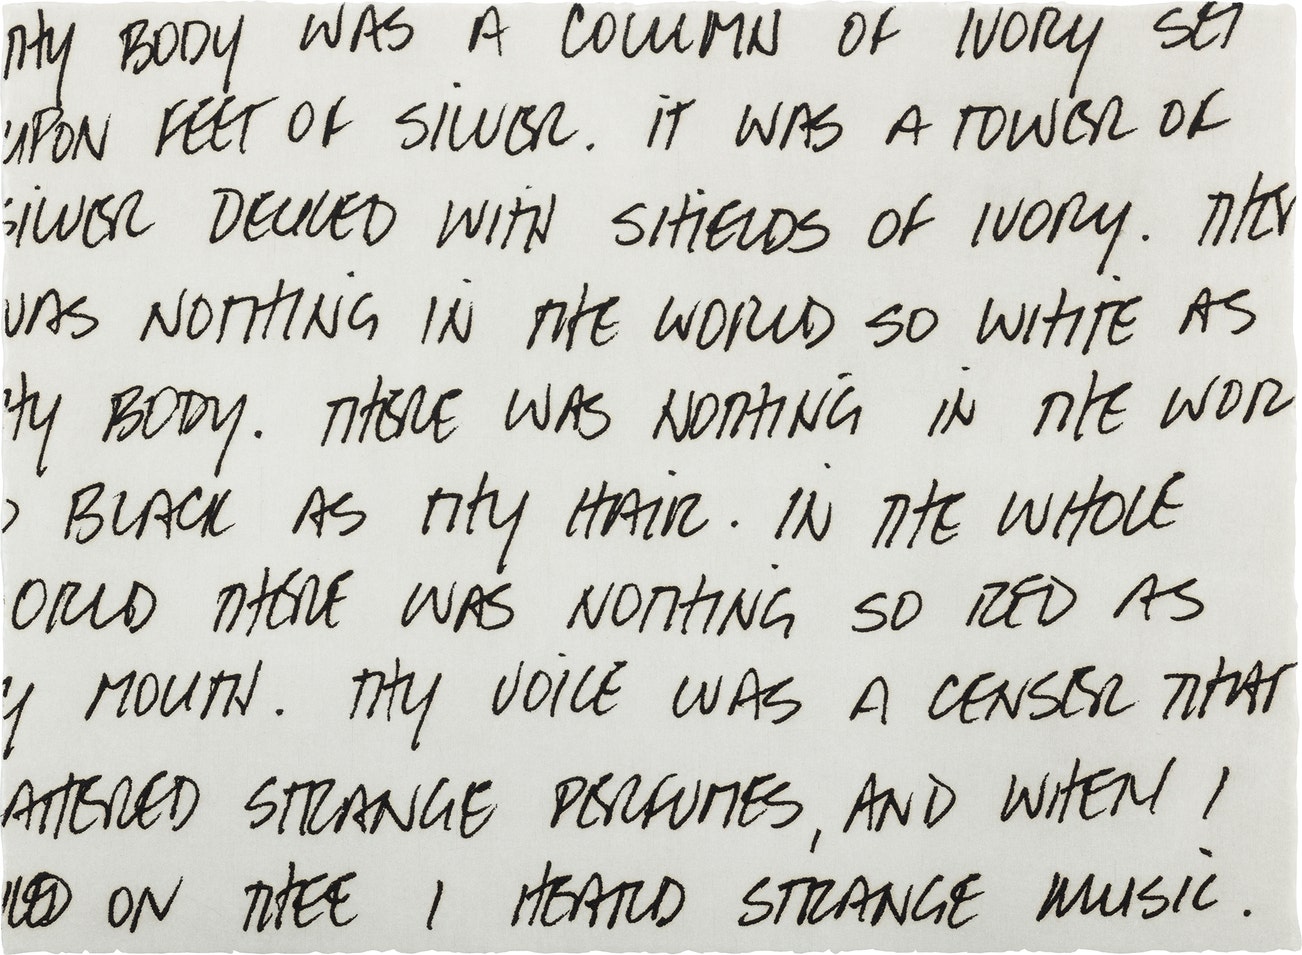 THY BODY WAS A COLUMN OF IVORY SET
UPON FEET OF SILVER. IT WAS A TOWER OF
SILVER DECKED WITH SHIELDS OF IVORY. THER
WAS NOTHING IN THE WORLD SO WHITE AS
THY BODY. THERE WAS NOTHING IN THE WOR
O BLACK AS THY HAIR. IN THE WHOLE
ORLD THERE WAS NOTHING SO RED AS
Y MOUTH. THY VOICE WAS A CENSER THAT
ATTERED STRANGE PERFUMES, AND WHEN I
KED ON THEE I HEARD STRANGE MUSIC.